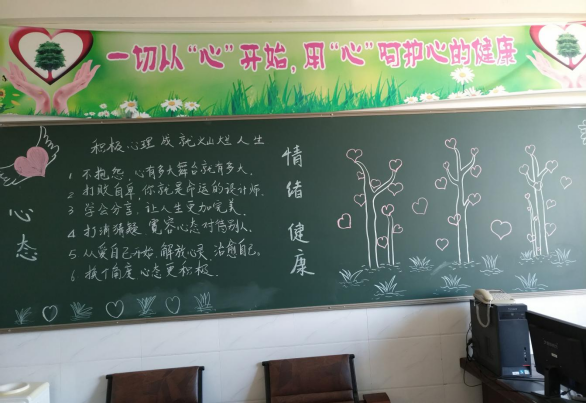 一切从“心”开始，用“心”呵护心的健康
积极心理 成就灿烂人生
1 不抱怨，心有多大舞台就有多大.
2 打败自卑，你就是命运的设计师.
3 学会分享，让人生更加完美.
4 打消猜疑 宽容心态对待别人.
5 从爱自己开始 解放心灵 治愈自己.
6 换个角度 心态更积极.
心态
情绪健康